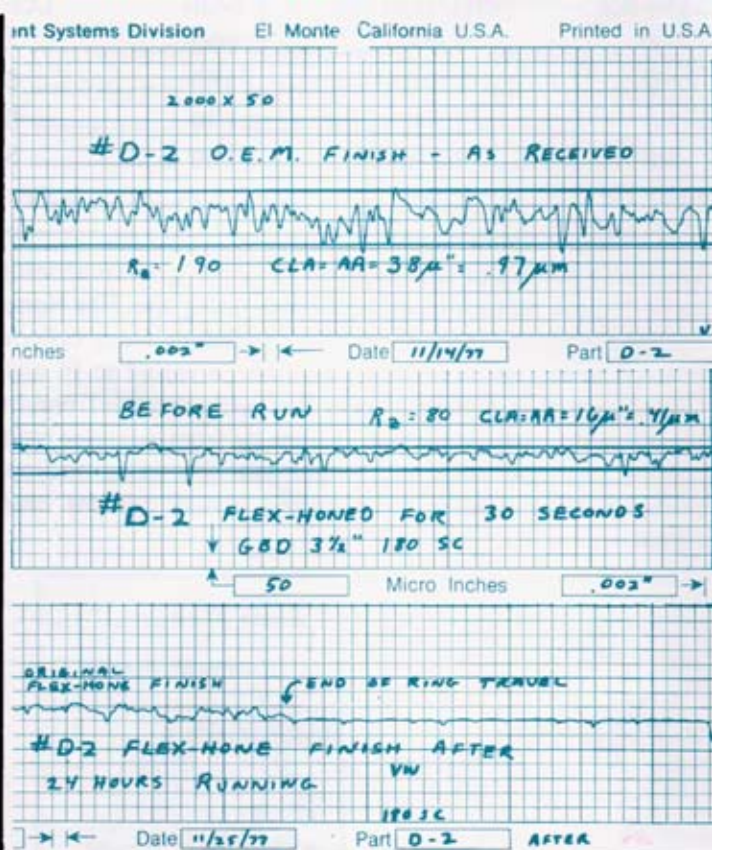 nt Systems Division El Monte California U.S.A. Printed in U.S.A
2000 X 50
#D-2 O.E.M. FINISH - AS RECEIVED
Ra= 190 CLA= AA= 38µ"= .97µm
nches .002" Date 11/14/77 Part D-2
BEFORE RUN Ra = 80 CLA=AA=16µ"=.41µm
#D-2 FLEX-HONED FOR 30 SECONDS
GBD 3½" 180 SC
50 Micro Inches .002"
ORIGINAL
FLEX-HONE FINISH END OF RING TRAVEL
#D-2 FLEX-HONE FINISH AFTER
VW
24 HOURS RUNNING
180 SC
Date 11/25/77 Part D-2 AFTER